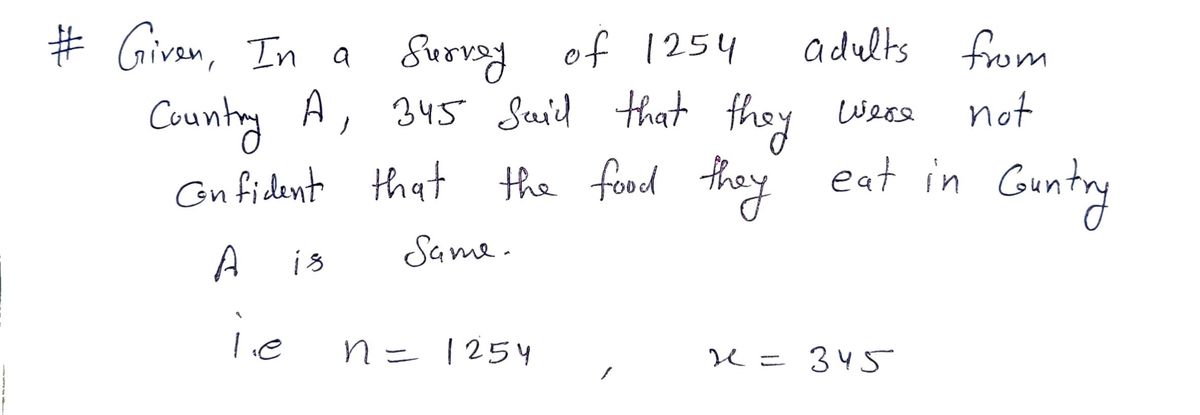 # Given, In a Survey of 1254 adults from
Country A, 345 Said that they were not
Confident that the food they eat in Country
A is Same.
i.e n = 1254 , x = 345